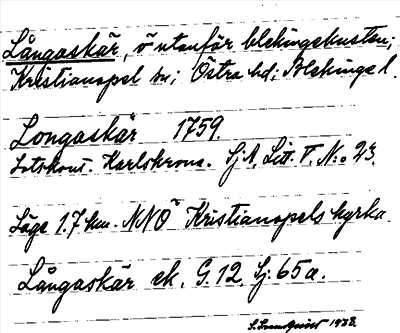 Långaskär, ö utanför blekingekusten;
Kristianopel sn; Östra hd; Blekinge l.
Longaskär 1759.
Lotskont. Karlskrona. SjA. Litt. T. N:o 23.
Läge 1.7 km. NNÖ Kristianopels kyrka.
Långaskär ek. G. 12. Sj. 65a.
1938.